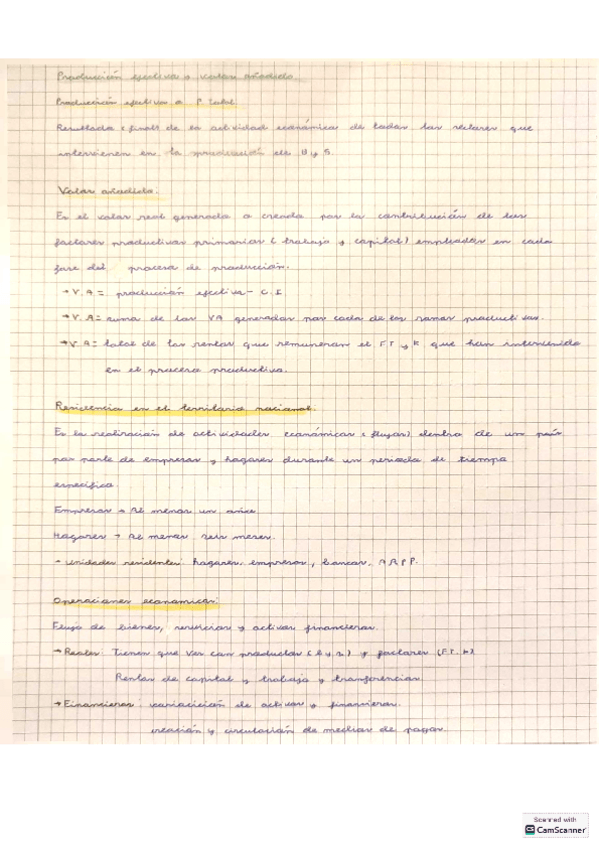 Producción efectiva y valor añadido.
Producción efectiva o P. total.
Resultado (final) de la actividad económica de todos los sectores que
intervienen en la producción de B y S.
Valor añadido:
Es el valor real generado o creado por la contribución de los
factores productivos primarios (trabajo y capital) empleados en cada
fase del proceso de producción.
→ V.A = producción efectiva - C.I
→ V.A = suma de los VA generados por cada de las ramas productivas.
→ V.A = total de las rentas que remuneran el FT y K que han intervenido
en el proceso productivo.
Residencia en el territorio nacional:
Es la realización de actividades económicas (flujos) dentro de un país
por parte de empresas y hogares durante un periodo de tiempo
específico.
Empresas → Al menos un año
Hogares → Al menos seis meses.
- unidades residentes: hogares, empresas, bancos, AAPP.
Operaciones económicas:
Flujo de bienes, servicios y activos financieros.
→ Reales: Tienen que ver con productos (b y s) y factores (FT, K)
Rentas de capital y trabajo y transferencias.
→ Financieras: variación de activos y financieros.
creación y circulación de medios de pagos.
Scanned with
CS CamScanner